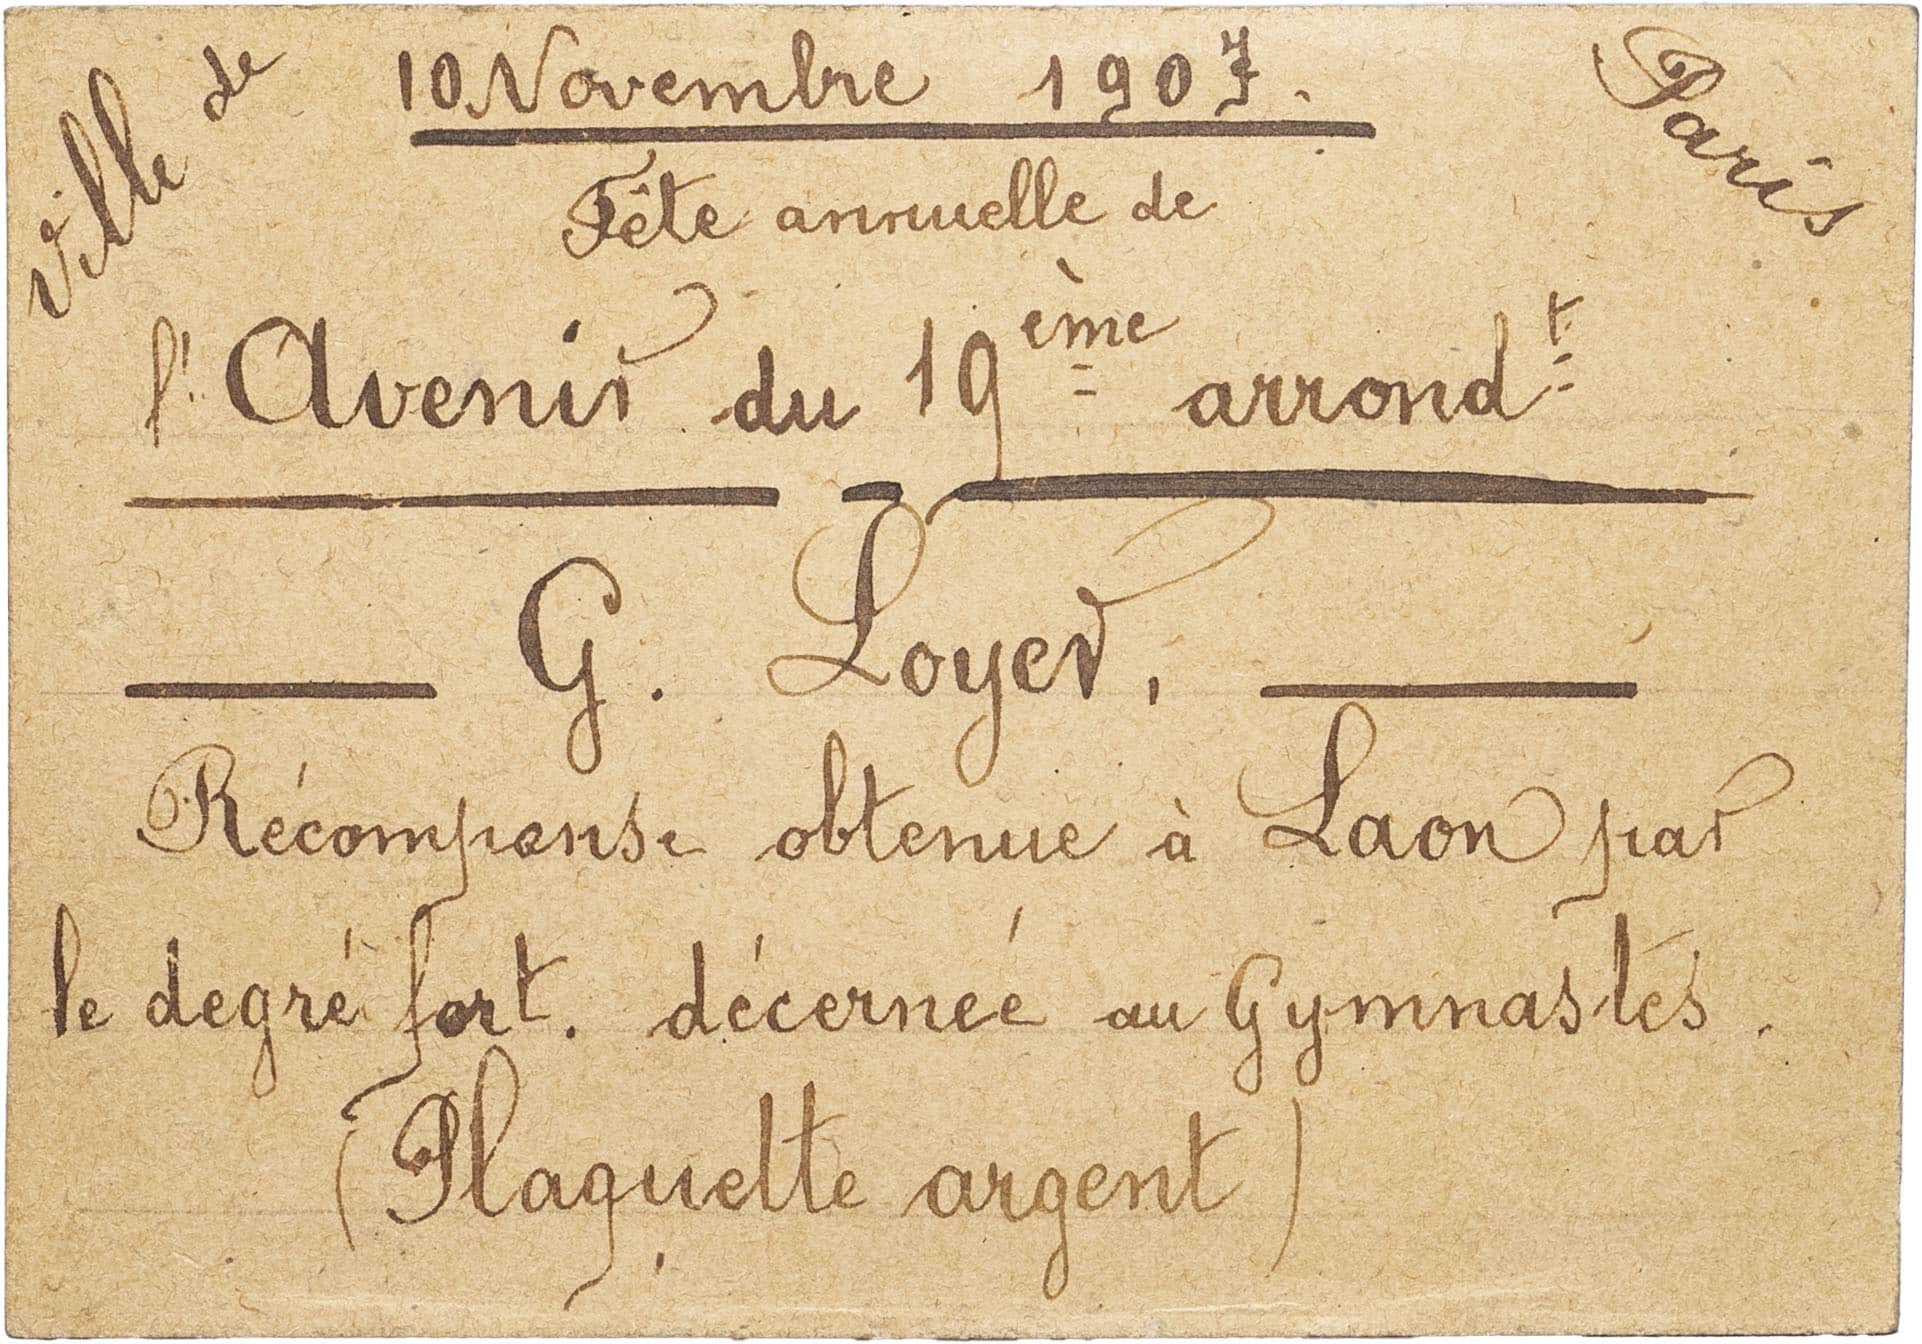 Ville de Paris
10 Novembre 1907.
Fête annuelle de
l'Avenir du 19ème arrondt
G. Loyer,
Récompense obtenue à Laon par
le degré fort. décernée au Gymnastes.
(Plaquette argent)